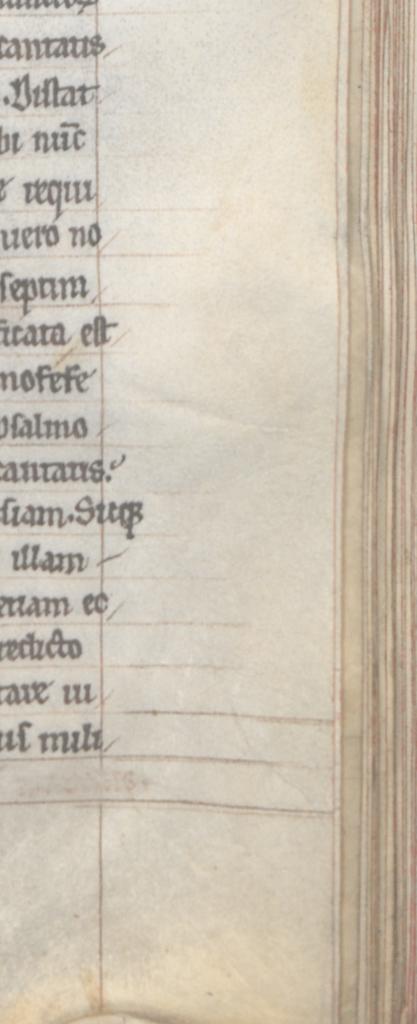 cantatis
.Distat
bi nūc
requi
uero no
septim
ficata est
psalmo
cantatis.
siam. Sitq;
illam
etiam ec
redicto
tare iu
us mili